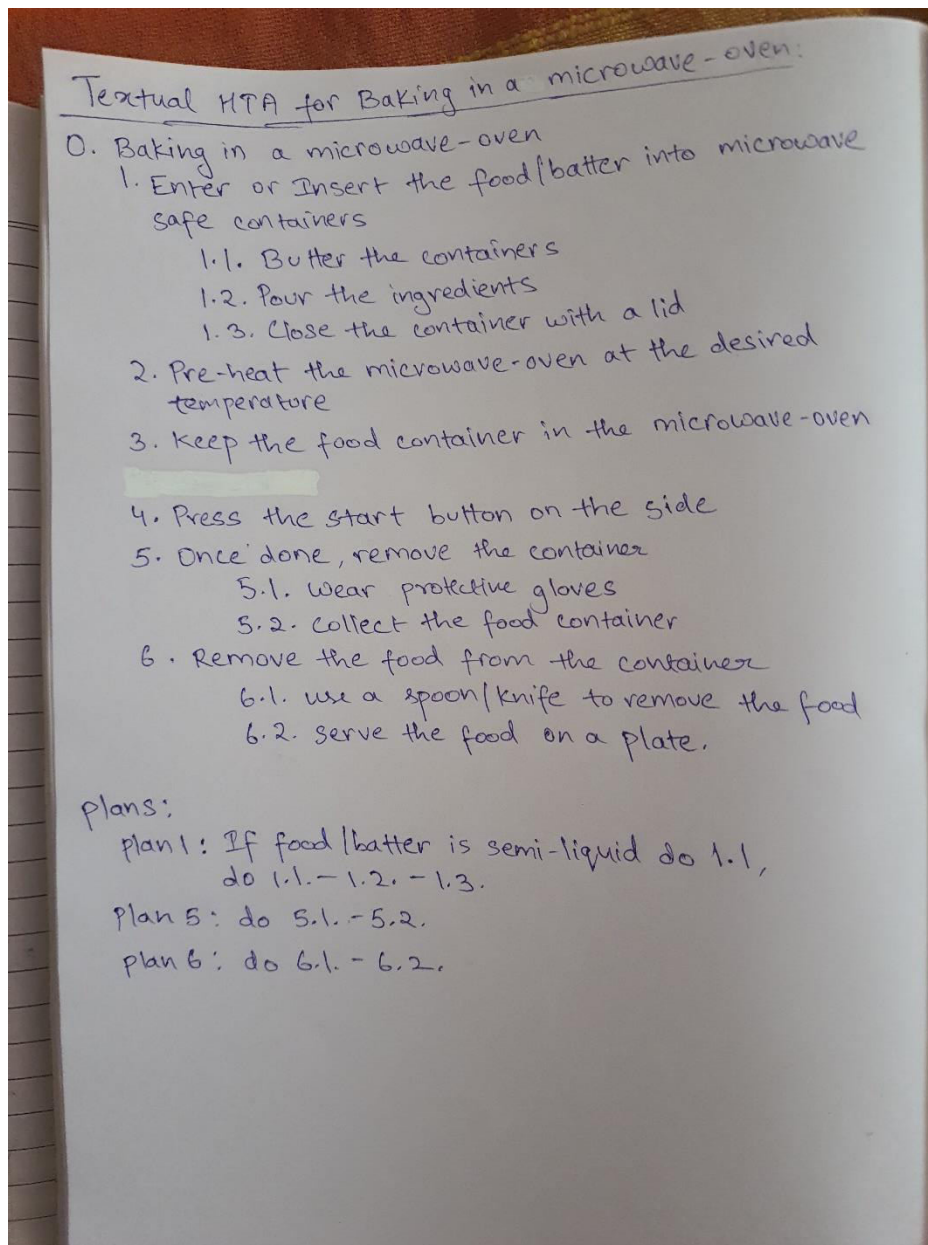 Textual HTA for Baking in a microwave-oven:
0. Baking in a microwave-oven
1. Enter or Insert the food/batter into microwave
safe containers
1.1. Butter the containers
1.2. Pour the ingredients
1.3. Close the container with a lid
2. Pre-heat the microwave-oven at the desired
temperature
3. Keep the food container in the microwave-oven
4. Press the start button on the side
5. Once done, remove the container
5.1. wear protective gloves
5.2. collect the food container
6. Remove the food from the container
6.1. use a spoon/knife to remove the food
6.2. serve the food on a plate.
plans:
plan 1: If food/batter is semi-liquid do 1.1,
do 1.1. - 1.2. - 1.3.
Plan 5: do 5.1. - 5.2.
plan 6: do 6.1. - 6.2.